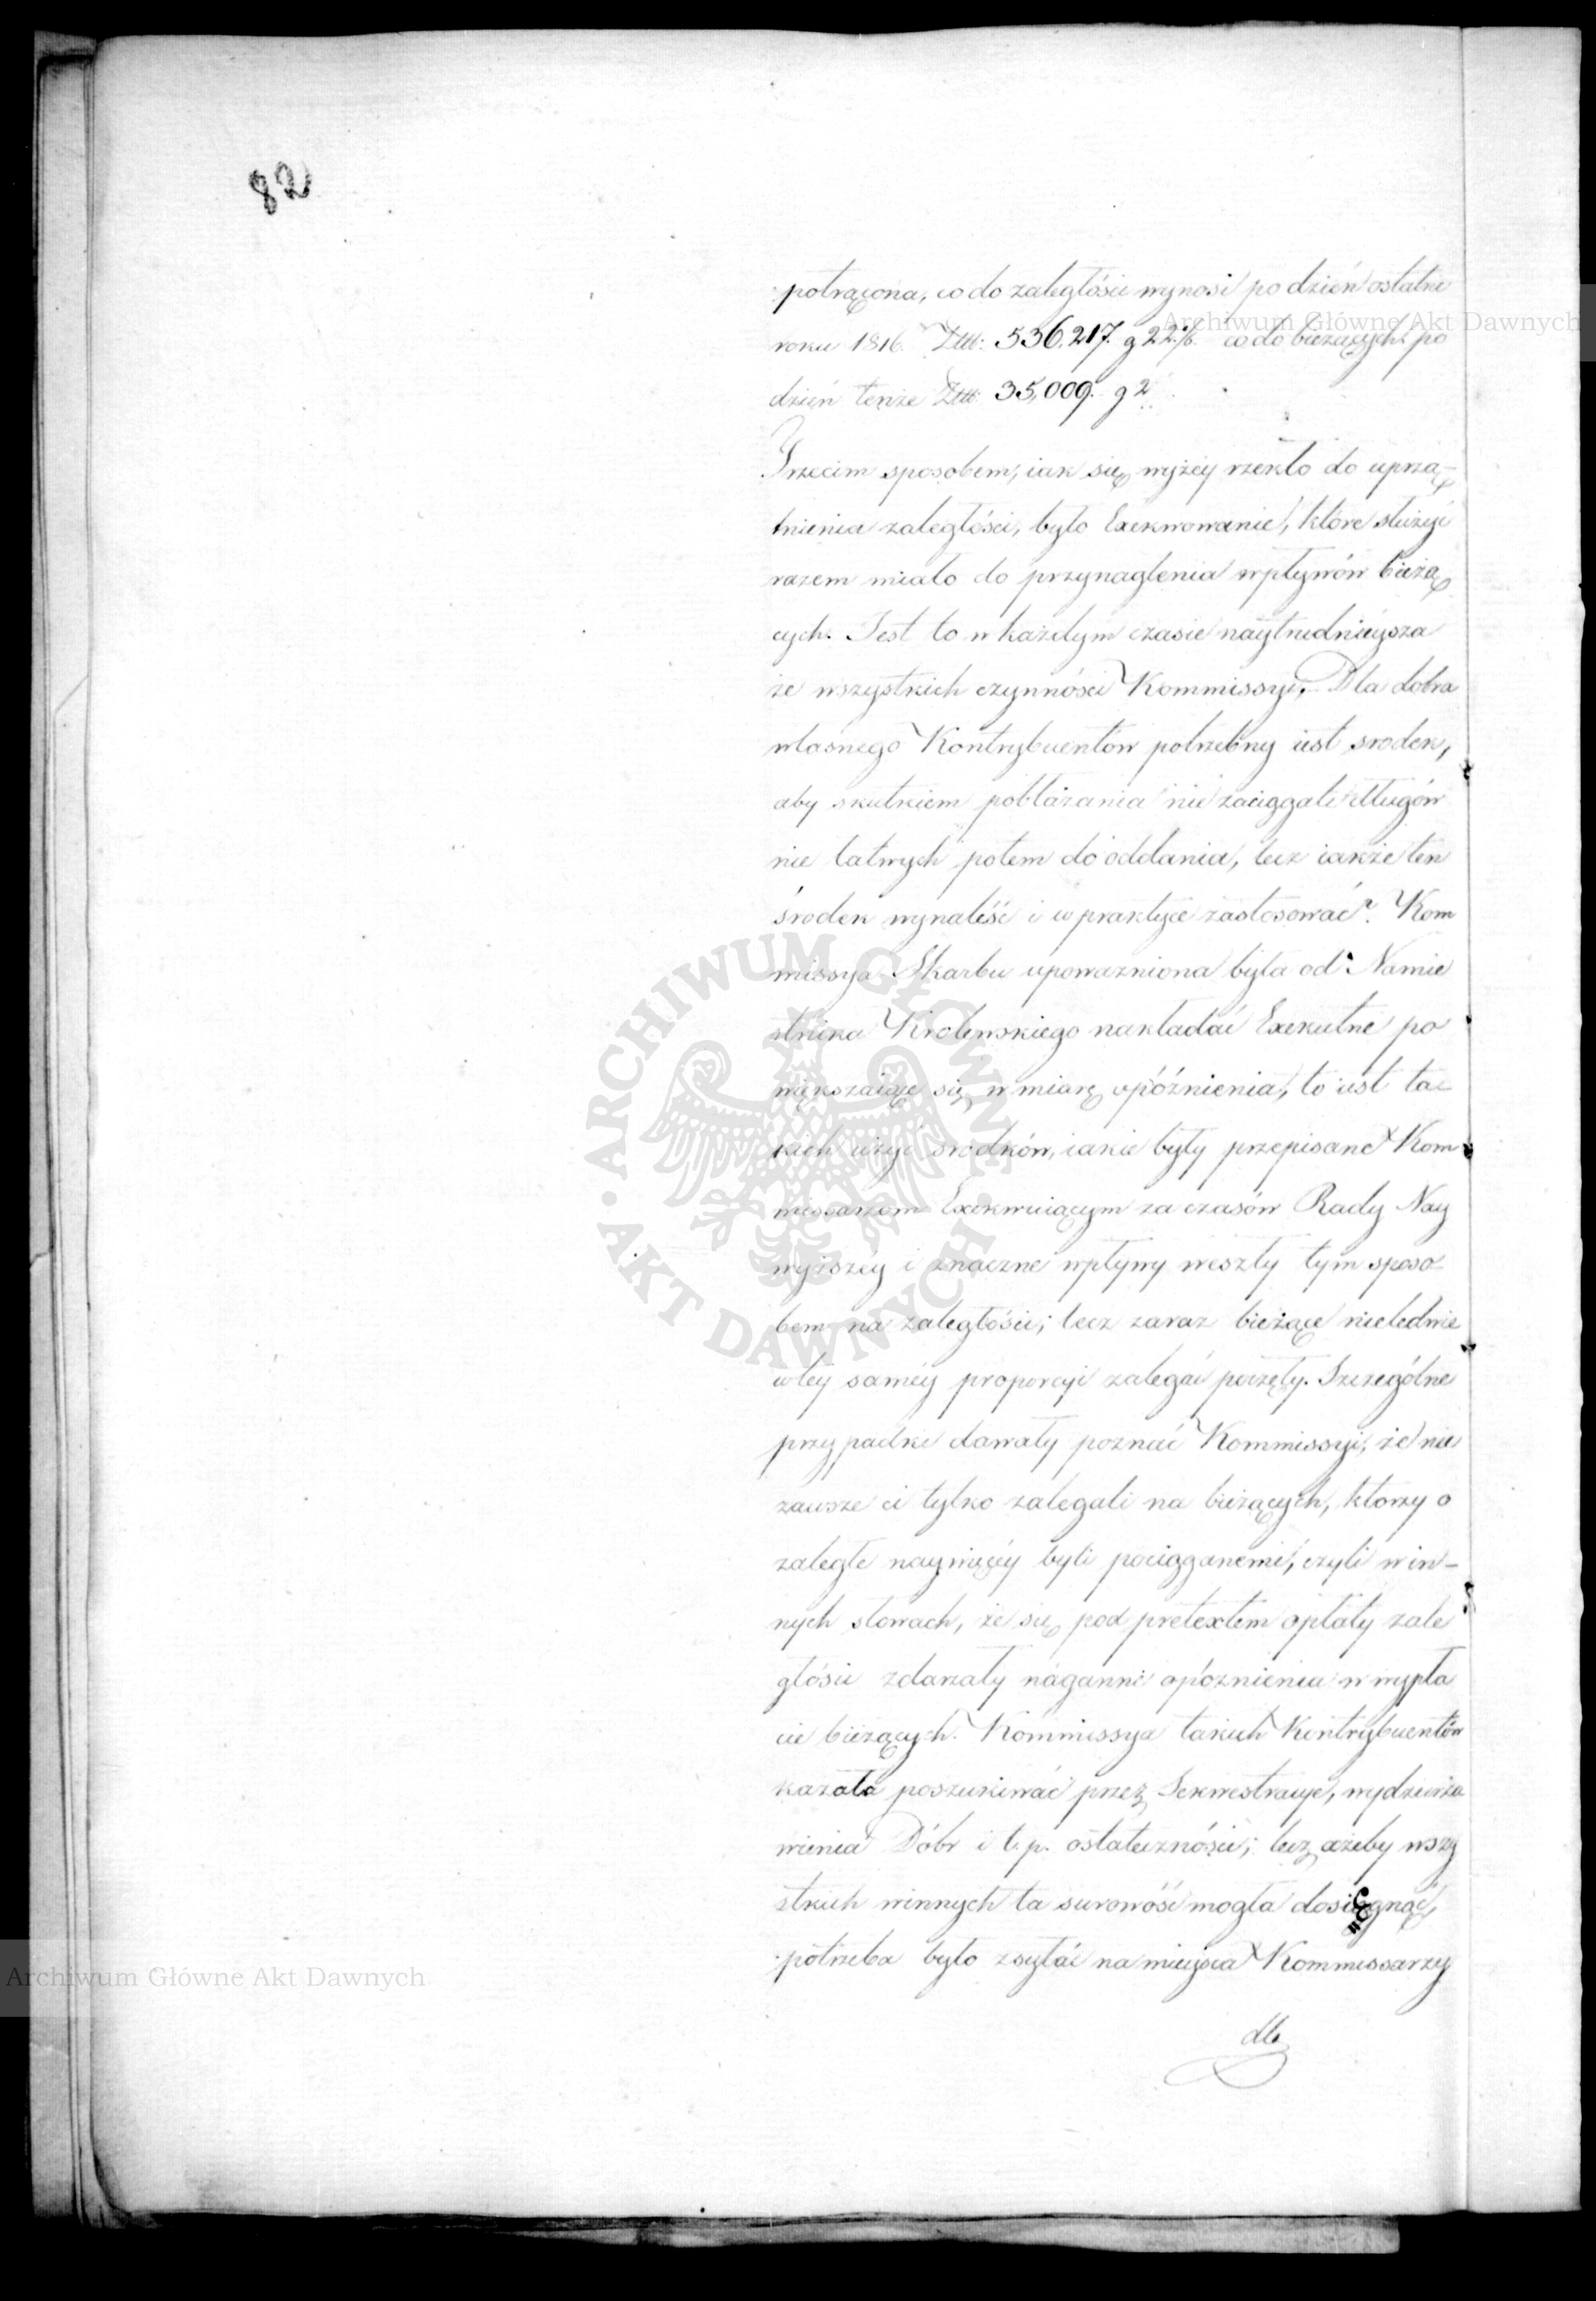 82
potrącona, co do zaległości wynosi po dzień ostatni
roku 1816. Złtt: 536.217. g 22 co do bieżących po
dzień tenże Złtt: 35,009. g 2
Trzecim sposobem, iak się wyżéy rzekło do uprzą-
tnienia zaległości, było Exekwowanie, które służyć
razem miało do przynaglenia wpływów bieżą
cych. Jest to w każdym czasie naytrudnieysza
ze wszystkich czynności Kommissyi. Dla dobra
własnego Kontrybuentów potrzebny iest srodek,
aby skutkiem pobłażania nie zaciągali długów
nie łatwych potem do oddania, lecz iakże ten
środek wynaleść i w praktyce zastosować? Kom
missya Skarbu upoważniona była od Namie
stnika Krolewskiego nakładać Exekutne po
większaiące się w miarę opóźnienia, to iest ta-
kich użyć srodków, iakie były przepisane Kom
missarzom Exekwuiącym za czasów Rady Nay
wyższéy i znaczne wpływy weszły tym sposo-
bem na zaległości; lecz zaraz bieżące nieledwie
w téy saméy proporcyi zalegać poczęły. Szczególne
przypadki dawały poznać Kommissyi, że nie
zawsze ci tylko zalegali na bieżących, ktorzy o
zaległe naywięcéy byli pociąganemi, czyli w in-
nych słowach, że się pod pretextem opłaty zale
głości zdarzały naganne opóznienia w wypła
cie bieżących. Kommissya takich Kontrybuentów
kazała poszukiwać przez Sekwestracye, wydzierża
wienia Dóbr i t. p. ostateczności; lecz ażeby wszy
stkich winnych ta surowość mogła dosięgnąć,
potrzeba było zsyłać na mieysca Kommissarzy
dla
Archiwum Główne Akt Dawnych
ARCHIWUM GŁÓWNE
AKT DAWNYCH
Archiwum Główne Akt Dawnych